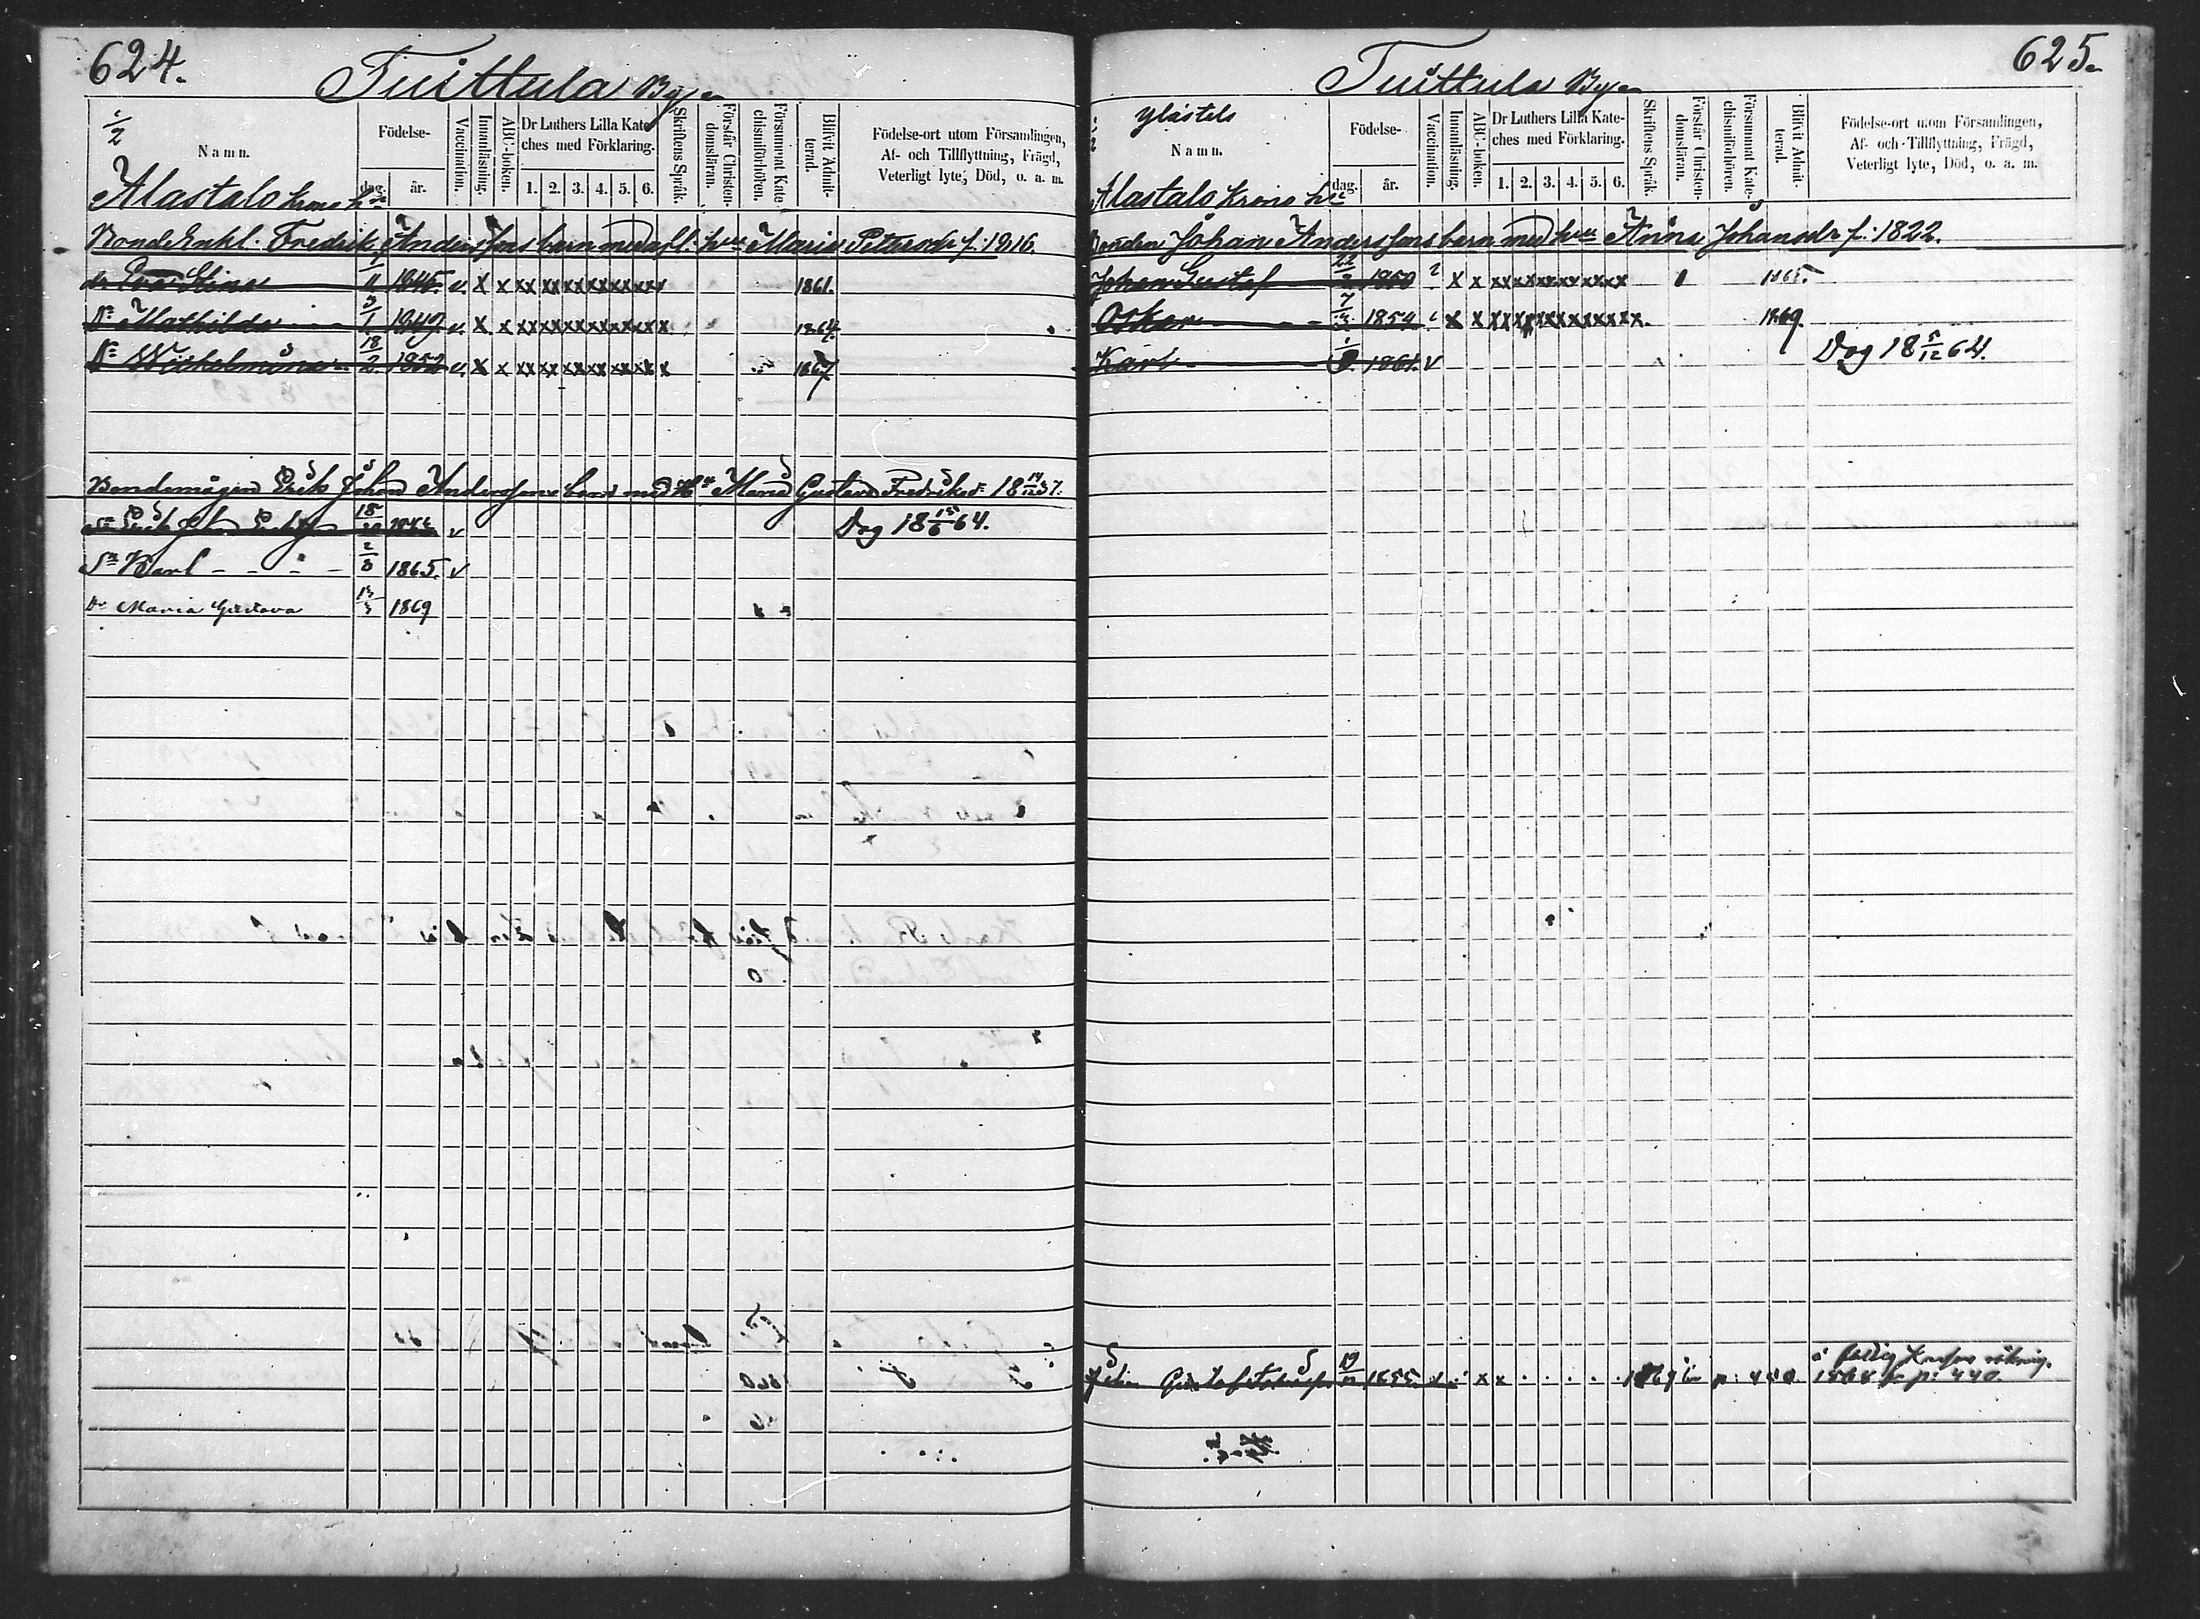 624.
Tuittula Byn
1/2
Namn.
Födelse-
dag.
år.
Vaccination.
Innanläsning.
ABC-boken.
Dr Luthers Lilla Kate-
ches med Förklaring.
1. 2. 3. 4. 5. 6.
Skriftens Språk.
Förstår Christen-
domsläran.
Försummat Kate-
chismiförhören.
Blifvit Admit-
terad.
Födelse-ort utom Församlingen,
Af- och Tillflyttning, Frägd,
Veterligt lyte, Död, o. a. m.
Alastalo krono
Bonde Enkl. Fredrik Anderssons barn med afl. hu Maria Petersdr f. 1816.
dr Eva Stina 1/11 1845. v. x x xx xx xx xx xx xx 1861.
Dr Mathilda 3/1 1849 v. x x xx xx xx xx xx xx x 1864.
Dr Wilhelmina 18/2 1852 v. x x xx xx xx xx xx xx x 1867
Bondemågen Erik Johan Anderssons barn med Hu Maria Gustava Fredriksdr 18 12 37.
Sn Erik Johan 18 v Dog 18 15/6 64.
Sn Karl - - " - 2/8 1865. v
Dr Maria Gustava 13/3 1869
625.
Tuittula Byn
Yliastels
Namn.
Födelse-
dag.
år.
Vaccination.
Innanläsning.
ABC-boken.
Dr Luthers Lilla Kate-
ches med Förklaring.
1. 2. 3. 4. 5. 6.
Skriftens Språk.
Förstår Christen-
domsläran.
Försummat Kate-
chismiförhören.
Blifvit Admit-
terad.
Födelse-ort utom Församlingen,
Af- och Tillflyttning, Frägd,
Veterligt lyte, Död, o. a. m.
Alastalo krono
Bonden Johan Anderssons barn med hu Anna Johansdr f. 1822.
Johan Gustaf 22/2 1850 x x xx xx xx xx xx xx 1 1865.
Oskar 7/3 1854 x x xx xx xx xx xx xx x. 1869.
Karl 1/8 1861. v Dog 18 5/12 64.
Johan Gustaf 19 1855 x x 1869 p: 440
1868 p: 440